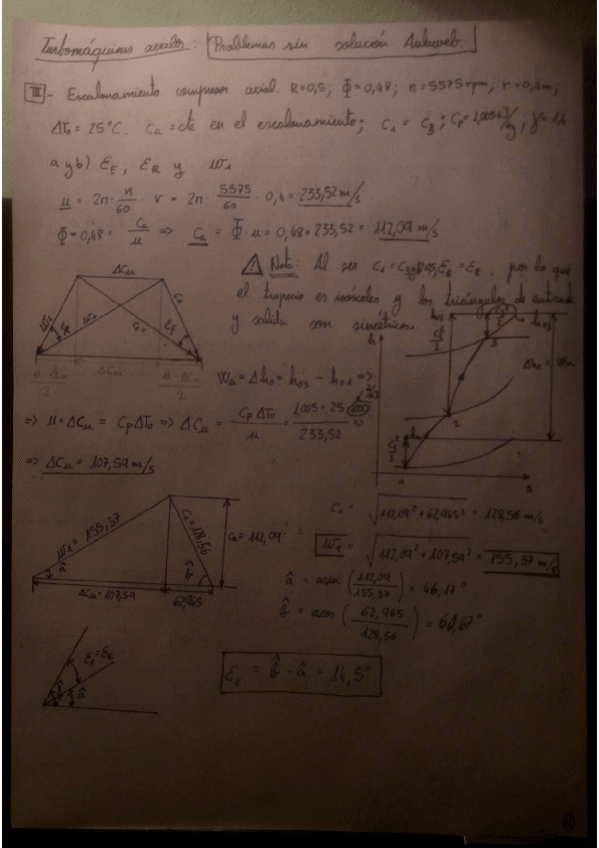 Turbomáquinas axiales: Problemas sin solución Aulaweb
III - Escalonamiento compresor axial. R=0,5; Φ=0,48; n=5575rpm; r=0,4m;
ΔT₀=25°C. Ca=cte en el escalonamiento; C₁ = C₃; Cp=1,005 kJ/kg; γ=1,4
a y b) ε_E, ε_R y w₁
u = 2π·n/60 · r = 2π·5575/60 · 0,4 = 233,52 m/s
Φ=0,48= Ca/u => Ca = Φ·u = 0,48·233,52 = 112,09 m/s
ΔCu
Nota: Al ser C₁=C₃ y R=0,5, ε_R=ε_E, por lo que
el trapecio es isósceles y los triángulos de entrada
y salida son simétricos.
u-ΔCu/2 ΔCu u-ΔCu/2
Wa = Δh₀ = h₀₃ - h₀₁ =>
Δh₀ = Wa
=> u·ΔCu = CpΔT₀ => ΔCu = CpΔT₀/u = 1,005·25·1000/233,52 =>
=> ΔCu = 107,59 m/s
h
C₃²/2
h₀₃
3
2
C₁²/2
1
s
w₁=155,37
C₁=128,56
Ca=112,09
â
b̂
ΔCu=107,59
62,965
C₁ = √(112,09²+62,965²) = 128,56 m/s
w₁ = √(112,09²+107,59²) = 155,37 m/s
â = asin (112,09/155,37) = 46,17°
b̂ = acos (62,965/128,56) = 60,67°
ε_E=ε_R
â
ε_E = b̂ - â = 14,5°